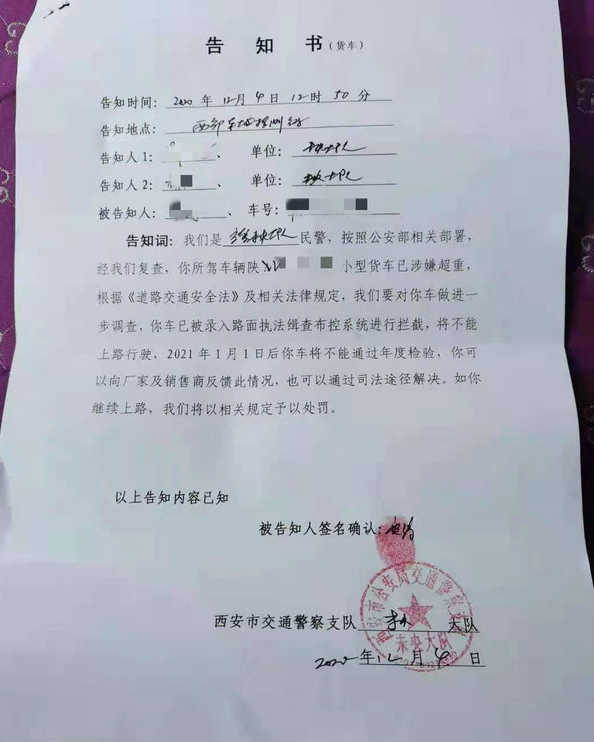 告 知 书（货车）
告知时间：2020 年 12 月 4 日 12 时 50 分
告知地点：西部车城检测站
告知人 1： 、 单位： 执大队
告知人 2： 、 单位： 执大队
被告知人： 、 车号：
告知词：我们是 民警，按照公安部相关部署，
经我们复查，你所驾车辆陕 小型货车已涉嫌超重，
根据《道路交通安全法》及相关法律规定，我们要对你车做进一
步调查，你车已被录入路面执法缉查布控系统进行拦截，将不能
上路行驶，2021 年 1 月 1 日后你车将不能通过年度检验，你可
以向厂家及销售商反馈此情况，也可以通过司法途径解决。如你
继续上路，我们将以相关规定予以处罚。
以上告知内容已知
被告知人签名确认：
西安市交通警察支队 大队
西安市公安局交通警察支队
未央大队
2020 年 12 月 4 日